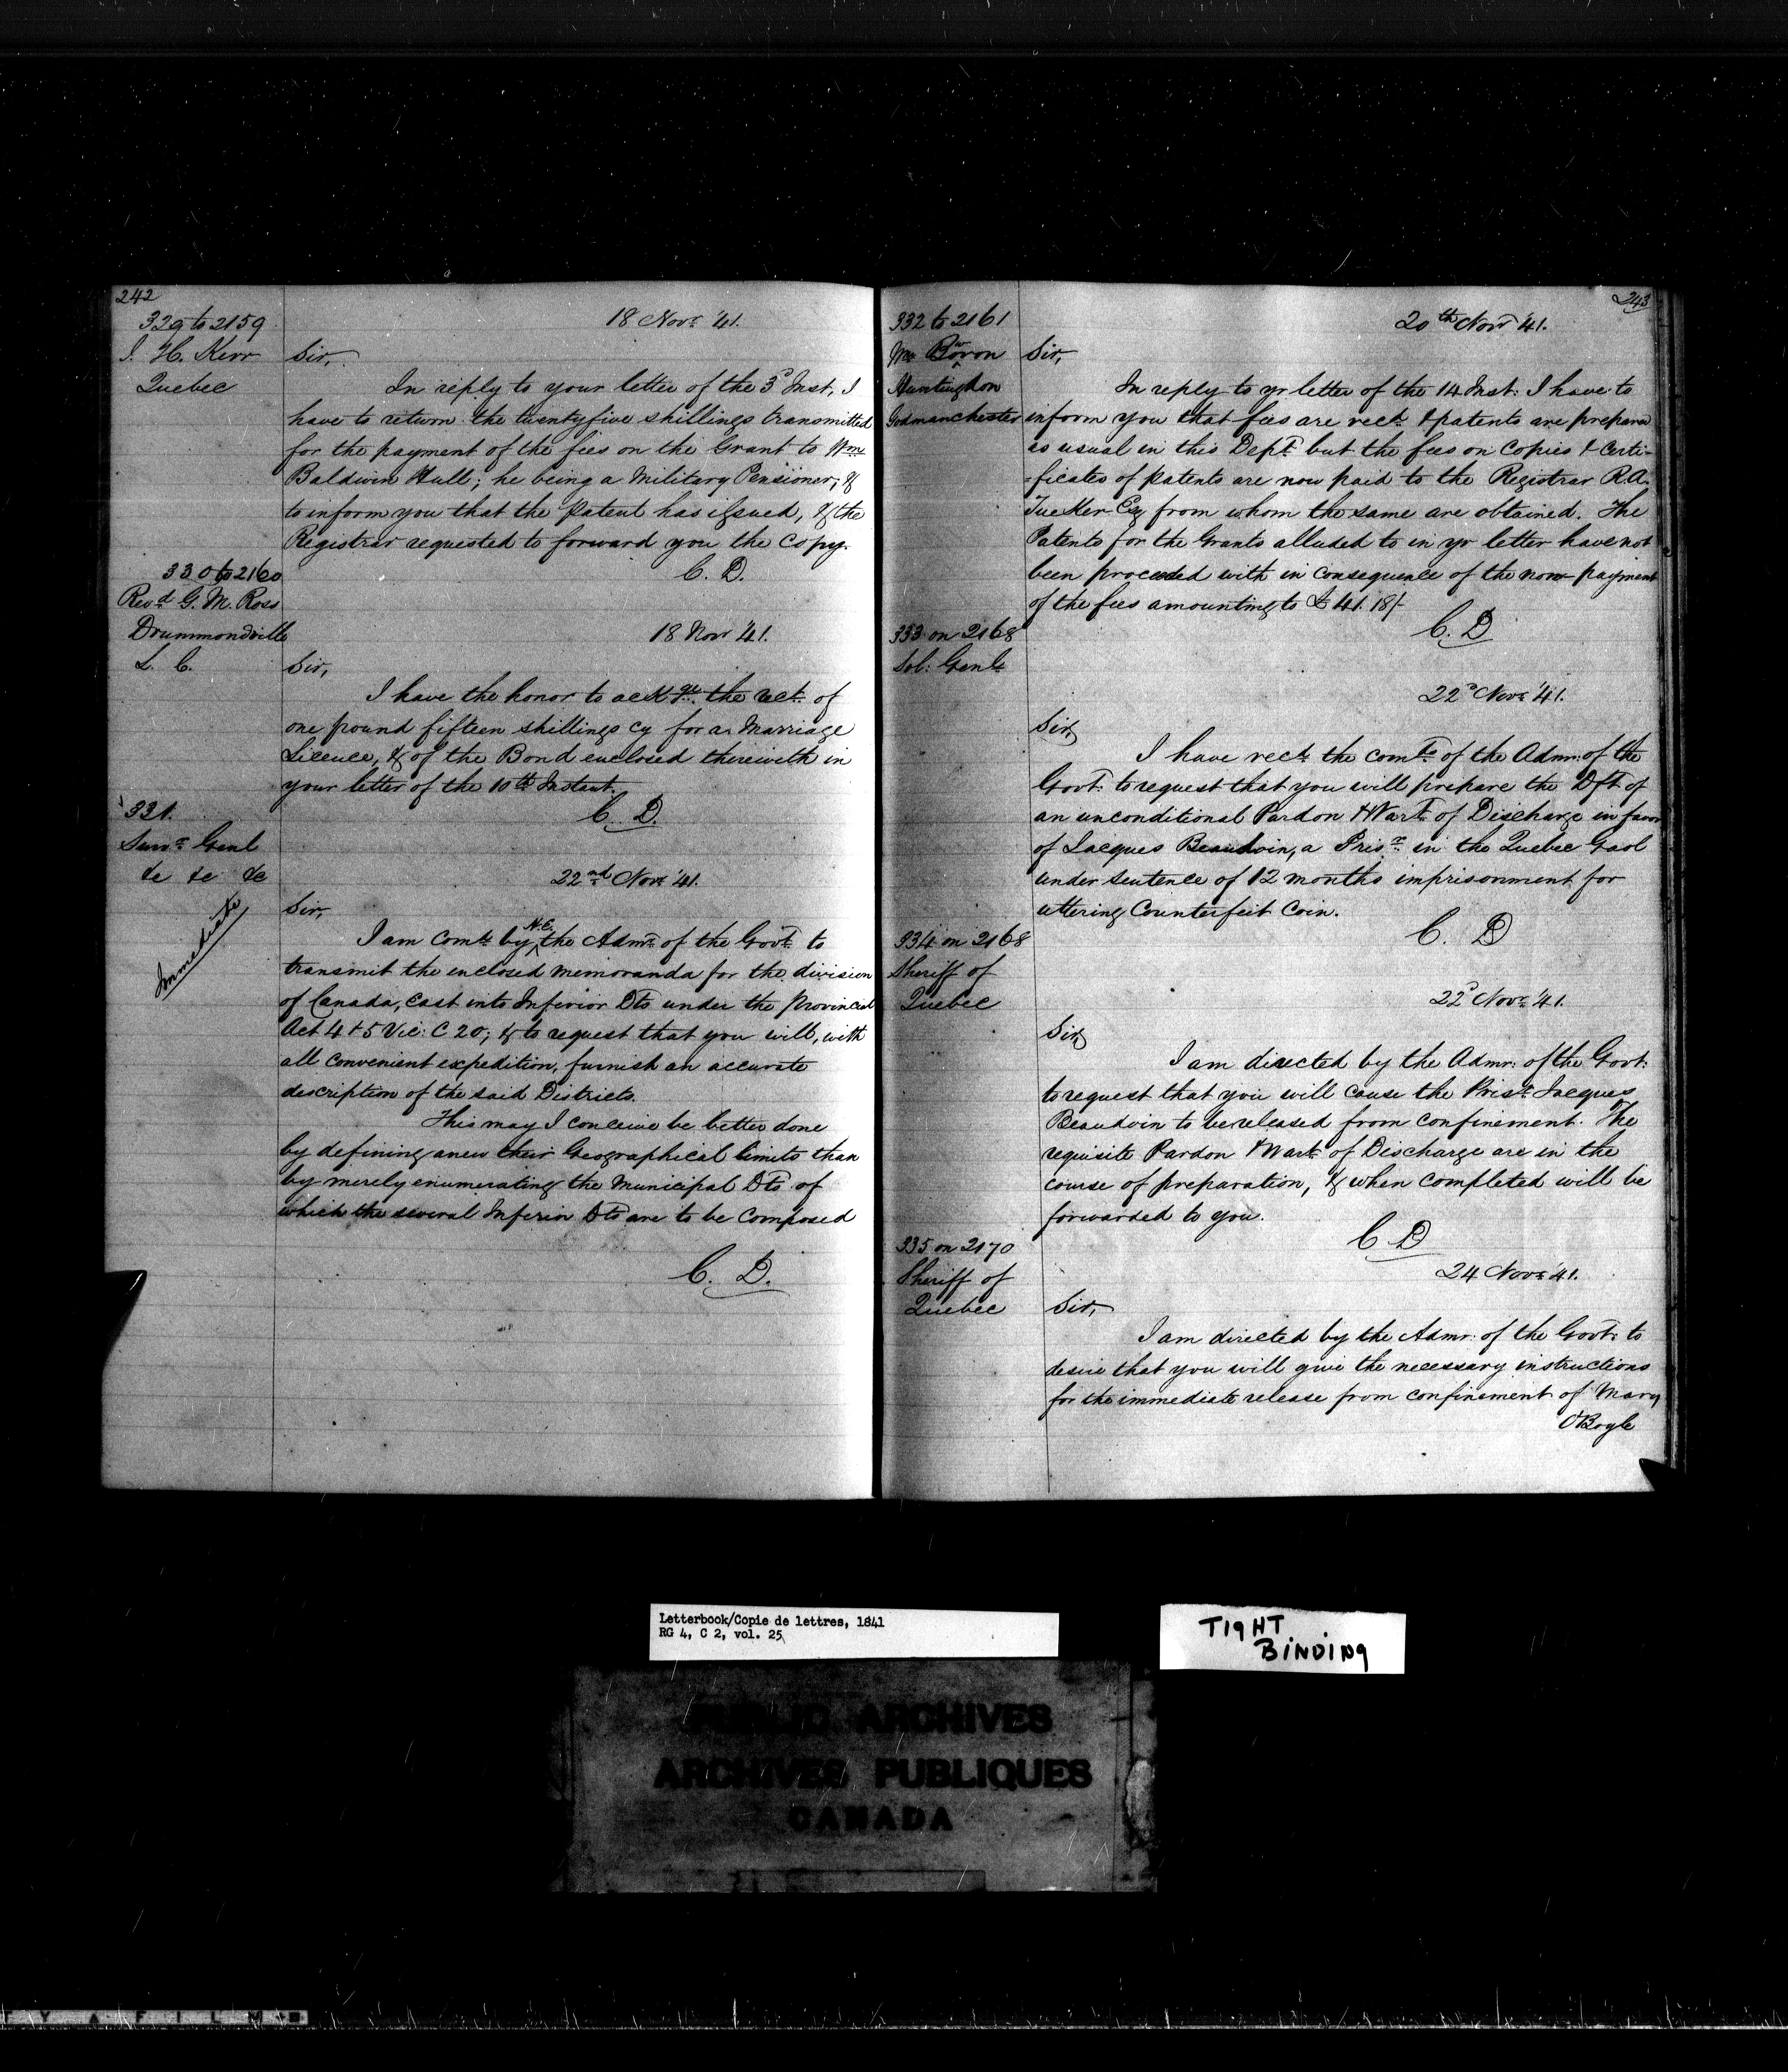 242
329 to 2159
J. H. Kerr
Quebec
18 Novr. '41.
Sir,
In reply to your letter of the 3d Inst, I
have to return the twentyfive shillings transmitted
for the payment of the fees on the Grant to Wm.
Baldwin Hull; he being a Military Pensioner; &
to inform you that the Patent has issued, & the
Registrar requested to forward you the Copy.
C. D.
330 to 2160
Revd. G. M. Ross
Drummondville
L. C.
18 Novr '41.
Sir,
I have the honor to ackge. the rect. of
one pound fifteen shillings cy for a Marriage
Licence, & of the Bond enclosed therewith in
your letter of the 10th Instant.
C. D.
331.
Survr. Genl
&c &c &c
Immediate
22nd Novr. '41.
Sir,
I am comd. by H.E. the Admr. of the Govt. to
transmit the enclosed memoranda for the division
of Canada, East into Inferior Dts under the Provincial
Act 4 & 5 Vic: C 20; & to request that you will, with
all convenient expedition, furnish an accurate
description of the said Districts.
This may I conceive be better done
by defining anew their Geographical limits than
by merely enumerating the Municipal Dts. of
which the several Inferior Dts are to be Composed
C. D.
243
332 to 2161
Mr
Huntingdon
Godmanchester
20th Novr '41.
Sir,
In reply to yr letter of the 14 Inst: I have to
inform you that fees are recd. & patents are prepared
as usual in this Dept. but the fees on Copies & Certi-
=ficates of patents are now paid to the Registrar R.A.
Tucker Esq from whom the same are obtained. The
Patents for the Grants alluded to in yr letter have not
been proceeded with in consequence of the non payment
of the fees amounting to £41. 18/-
C. D
333 on 2168
Sol: Genl.
22d Novr. '41.
Sir,
I have recd. the comds. of the Admr: of the
Govt. to request that you will prepare the Dft of
an unconditional Pardon & Wart. of Discharge in favor
of Jacques Beaudoin, a Prisr. in the Quebec Gaol
under sentence of 12 months imprisonment for
uttering Counterfeit Coin.
C. D
334 on 2168
Sheriff of
Quebec
22d Novr. '41.
Sir,
I am directed by the Admr: of the Govt:
to request that you will cause the Prisr. Jacques
Beaudoin to be released from confinement. The
requisite Pardon & Wart. of Discharge are in the
course of preparation, & when completed will be
forwarded to you.
C D
335 on 2170
Sheriff of
Quebec
24 Novr. '41.
Sir,
I am directed by the Admr: of the Govt: to
desire that you will give the necessary instructions
for the immediate release from confinement of Mary
O'Boyle
Letterbook/Copie de lettres, 1841
RG 4, C 2, vol. 25
TIGHT
BINDING
PUBLIC ARCHIVES
ARCHIVES PUBLIQUES
CANADA